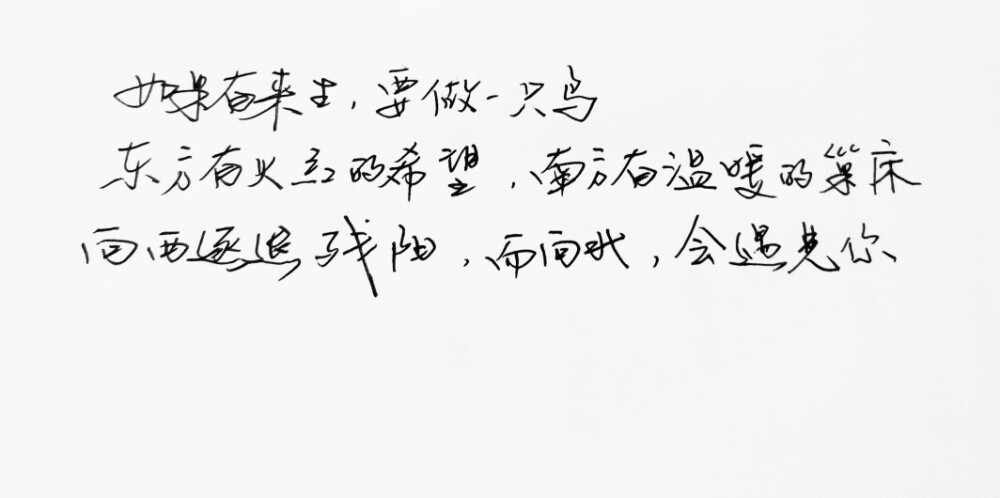 如果有来生,要做一只鸟
东方有火红的希望,南方有温暖的巢床
向西逐退残阳,而向我,会遇见你